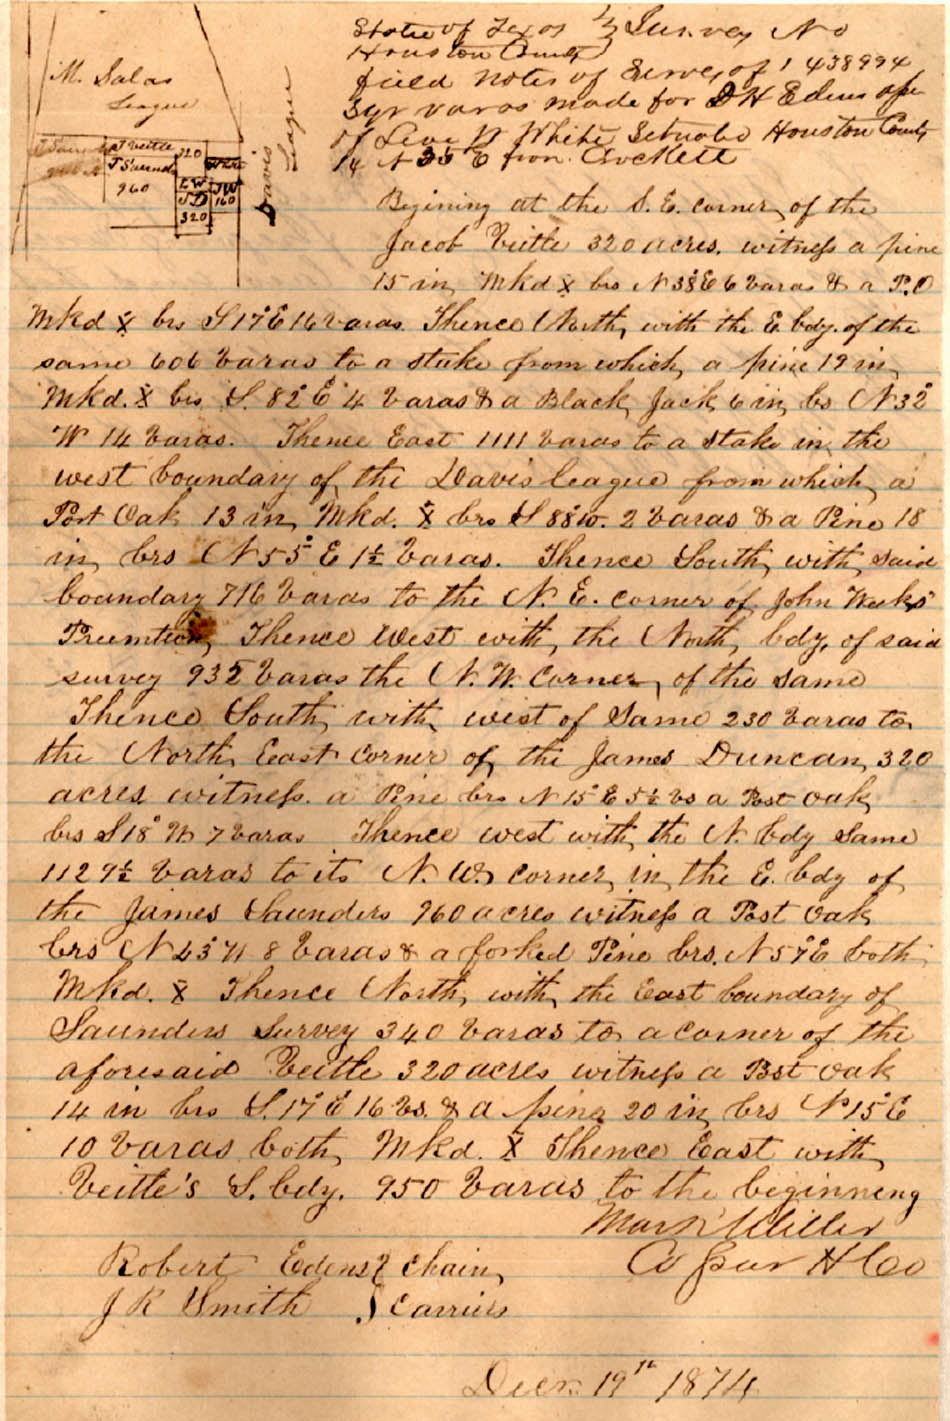 State of Texas } Survey No
Houston County }
field notes of Survey of 1438994
Sqr varas made for D H Edens
of Levi White Situate Houston County
14 N 35 E from Crockett
M. Salas
League
J Veitle 320
J Saunders
960
320
160
Davis
League
Begining at the S. E. corner of the
Jacob Veitle 320 acres. witness a pine
15 in Mkd X brs N 38° E 6 varas & a P.O
Mkd X brs S 17° E 16 varas. Thence North, with the E. bdy. of the
same 606 varas to a stake from which a pine 19 in
Mkd. X brs S. 82° E 4 varas & a Black Jack 6 in bs N 32°
W 14 varas. Thence East 1111 varas to a stake in the
west boundary of the Davis league from which a
Post Oak 13 in Mkd. X brs S 88° W. 2 varas & a Pine 18
in brs N 55° E 1½ varas. Thence South, with said
boundary 716 varas to the N. E. corner of John Weeks'
Preemtion, Thence West with, the North, bdy, of said
survey 935 varas the N. W. Corner, of the same
Thence South, with west of Same 230 varas to
the North East Corner of the James Duncan 320
acres witness. a Pine brs N 15° E 5½ vs a Post Oak
brs S 18° W 7 varas Thence west with the N. bdy Same
1129½ varas to its N. W. corner in the E. bdy of
the James Saunders 960 acres witness a Post Oak
brs N 43° W 8 varas & a forked Pine brs. N 57° E both
Mkd. X Thence North, with the East boundary of
Saunders Survey 340 varas to a corner of the
aforesaid Veitle 320 acres witness a Post Oak
14 in brs S. 17° E 16 vs. & a pine 20 in brs N 15° E
10 varas both Mkd. X Thence East with
Veitle's S. bdy. 950 varas to the beginneng
Mark Miller
Co Sur H Co
Robert Edens } Chain
J R Smith } Carriers
Decr. 19th 1874